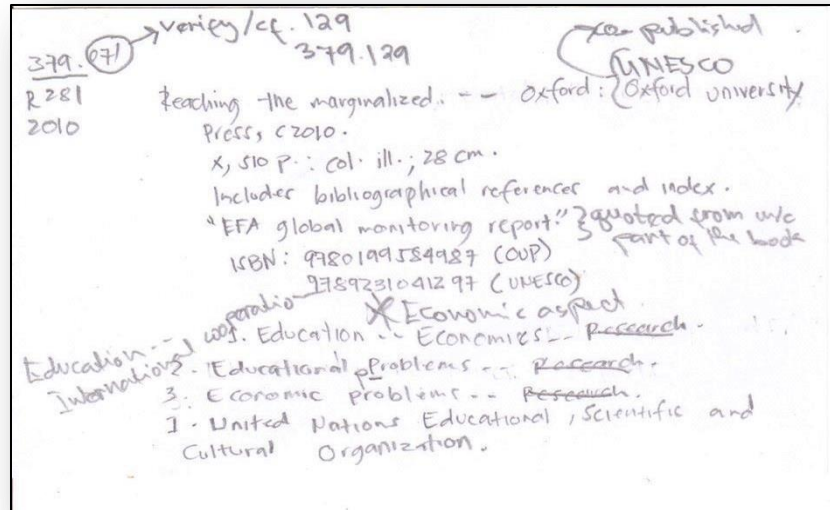 verify/cf. 129
379.129
379.071
R281
2010
co-published
UNESCO
Reaching the marginalized. -- Oxford: Oxford University
Press, c2010.
x, 510 p.: col. ill.; 28 cm.
Includes bibliographical references and index.
"EFA global monitoring report." quoted from w/c
part of the book
ISBN: 9780199584987 (OUP)
9789231041297 (UNESCO)
Economic aspect
1. Education -- Economics -- Research.
Education --
International cooperation
2. Educational problems -- Research.
3. Economic problems -- Research.
I. United Nations Educational, Scientific and
Cultural Organization.